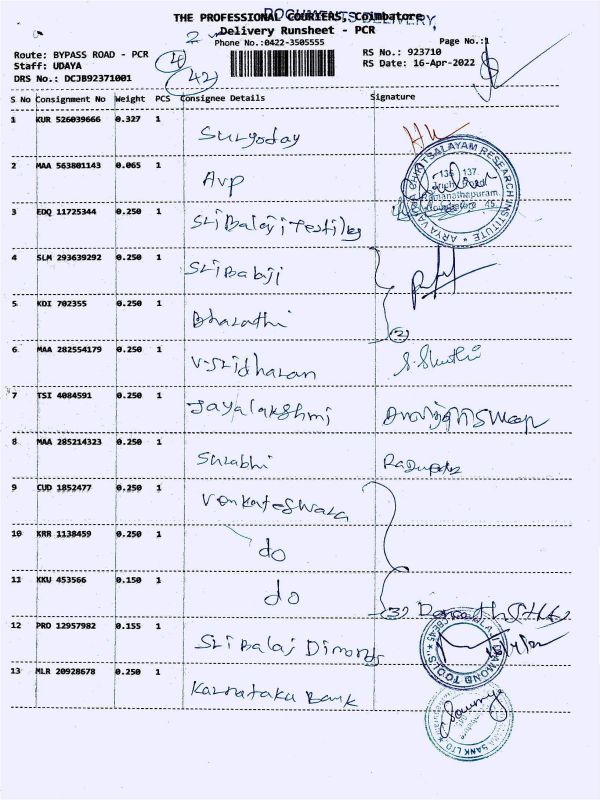 DOCUMENTS DELIVERY,
THE PROFESSIONAL COURIERS, Coimbatore
Delivery Runsheet - PCR
Phone No.:0422-3505555
Page No.:1
Route: BYPASS ROAD - PCR
RS No.: 923710
Staff: UDAYA
RS Date: 16-Apr-2022
DRS No.: DCJB92371001
4
42
S No Consignment No Weight PCS Consignee Details Signature
1 KUR 526039666 0.327 1 Suryoday
2 MAA 563801143 0.065 1 Avp
3 EDQ 11725344 0.250 1 Sri Balaji Textiles
4 SLM 293639292 0.250 1 Sri Babji
5 KDI 702355 0.250 1 Bharathi
2
6 MAA 282554179 0.250 1 V. Sridharan S. Sruthi
7 TSI 4084591 0.250 1 Jayalakshmi
8 MAA 285214323 0.250 1 Surabhi
9 CUD 1852477 0.250 1 Venkateswara
10 KRR 1138459 0.250 1 do
11 KKU 453566 0.150 1 do
3
12 PRO 12957982 0.155 1 Sri Balaj Dimonds
13 MLR 20928678 0.250 1 Karnataka Bank
CHIKITSALAYAM RESEARCH INSTITUTE * ARYA VAIDYA
136 137
Ramanathapuram,
Coimbatore 45
DIAMOND TOOLS
BANK LTD